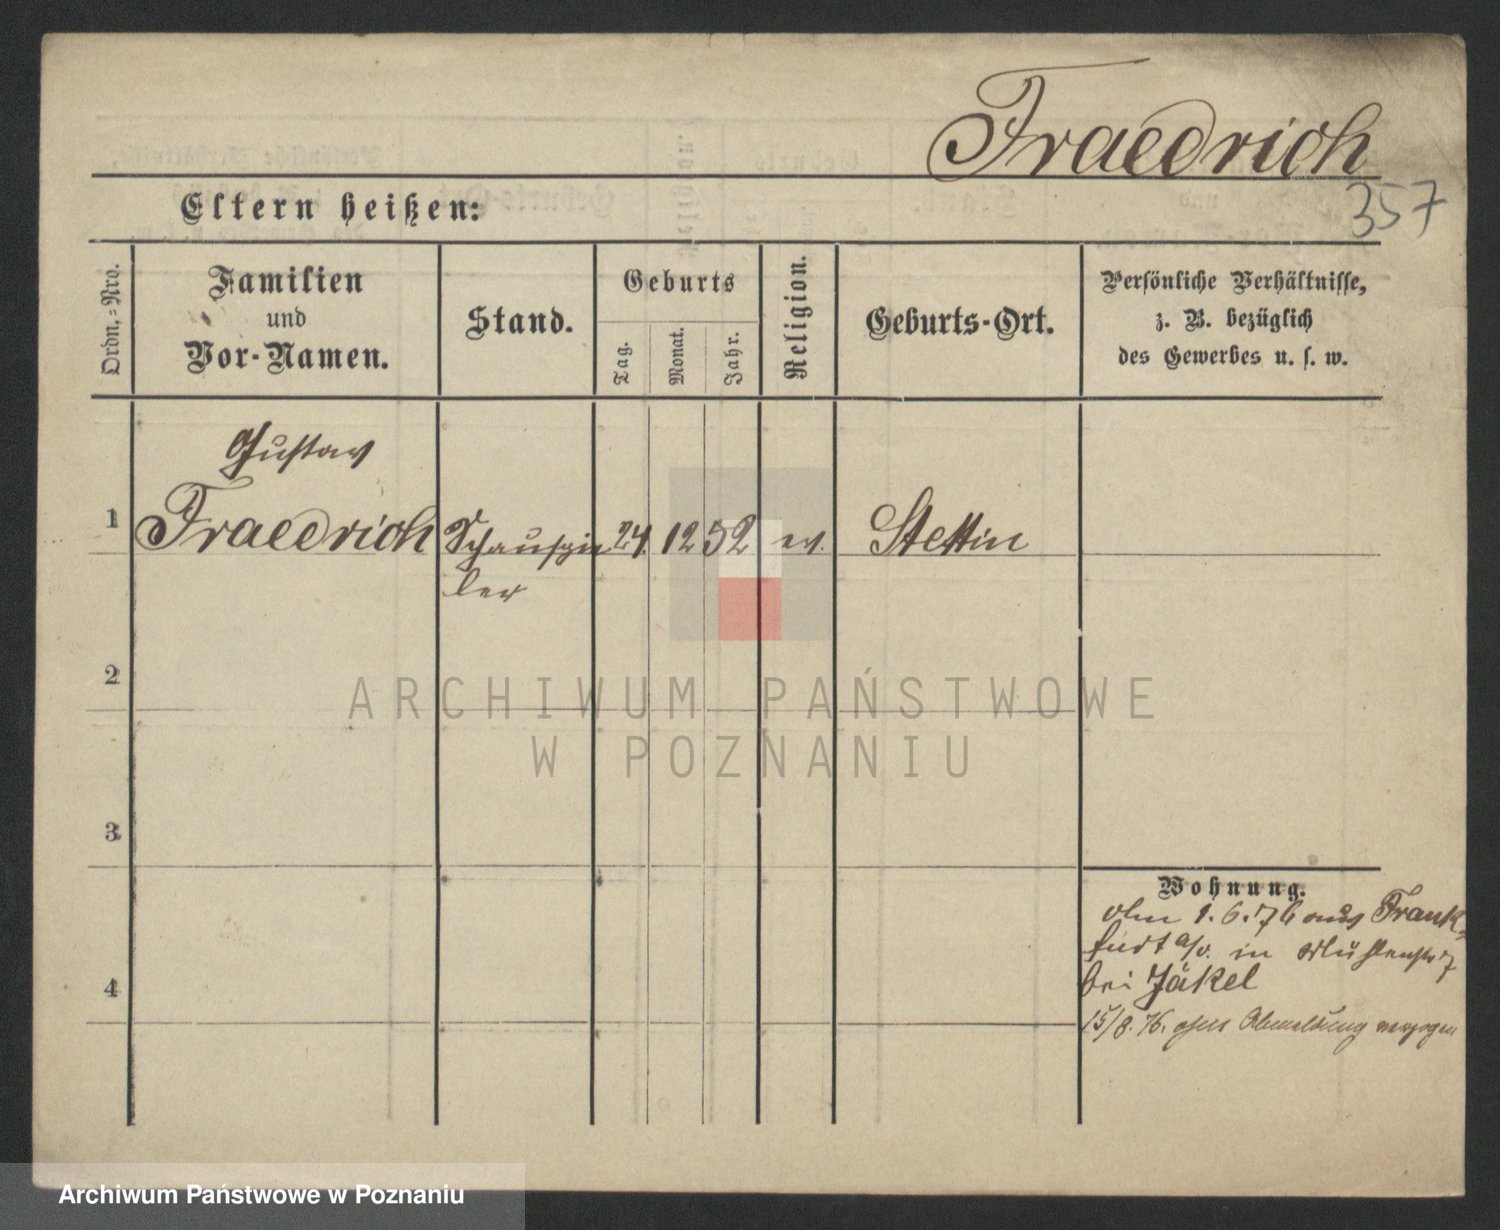 Fraedrich
357
Eltern heißen:
Ordn.-Nro.
Familien
und
Vor-Namen.
Stand.
Geburts
Tag.
Monat.
Jahr.
Religion.
Geburts-Ort.
Persönliche Verhältnisse,
z. B. bezüglich
des Gewerbes u. s. w.
Gustav
1 Fraedrich Schauspie 24. 12 52 ev. Stettin
ler
2
3
4
Wohnung.
1. 6. 76 aus Frank-
furt a/o. in Mühlenstr 7
bei Jäkel
15/8. 76. ohne Abmeldung verzogen
ARCHIWUM PAŃSTWOWE
W POZNANIU
Archiwum Państwowe w Poznaniu